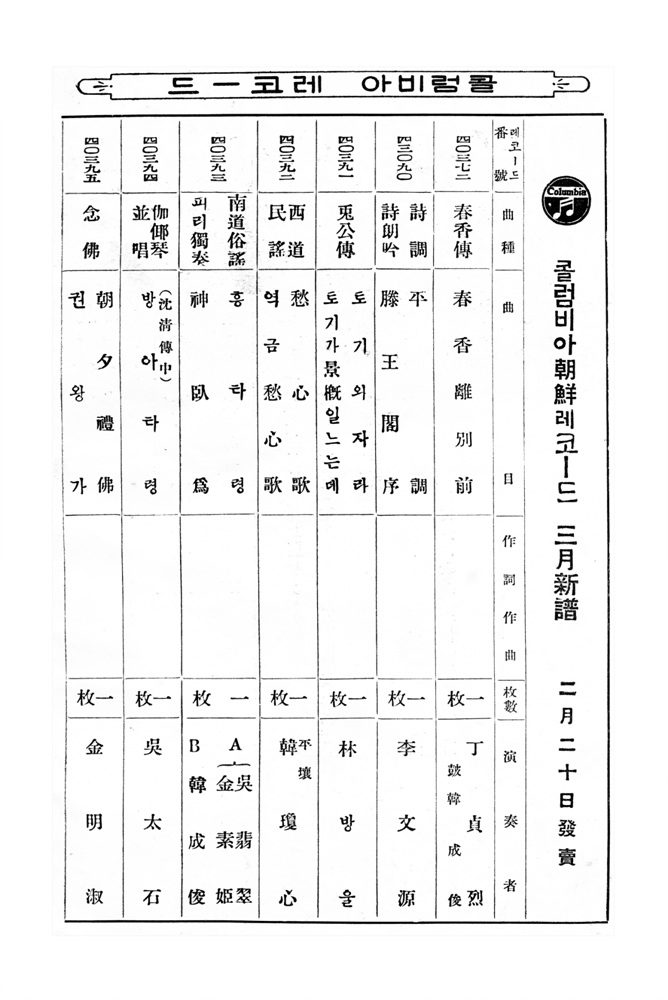 콜럼비아 레코ー드
Columbia
콜럼비아朝鮮레코ー드 三月新譜 二月二十日發賣
레코ー드
番號
曲種
曲目
作詞作曲
枚數
演奏者
四〇三七二
春香傳
春香離別前
一枚
丁貞烈
鼓韓成俊
四三〇九〇
詩調
詩朗吟
平調
滕王閣序
一枚
李文源
四〇三九一
兎公傳
토기외자라
토기가景槪일느는데
一枚
林방울
四〇三九二
西道
民謠
愁心歌
역금愁心歌
一枚
平壤
韓瓊心
四〇三九三
南道俗謠
피리獨奏
흥타령
神臥爲
一枚
A 吳翡翠
金素姬
B 韓成俊
四〇三九四
伽倻琴
並唱
(沈淸傳中)
방아타령
一枚
吳太石
四〇三九五
念佛
朝夕禮佛
권왕가
一枚
金明淑